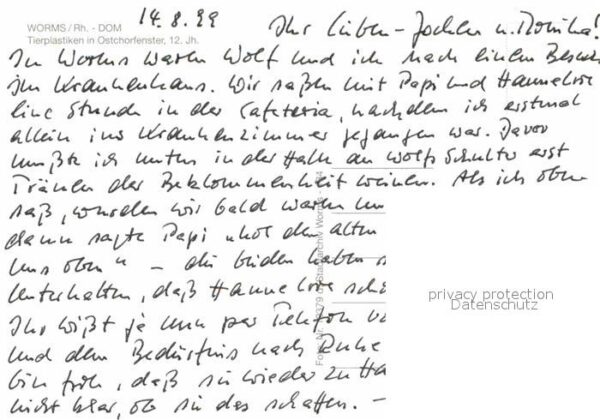 14.8.99
WORMS / Rh. - DOM
Tierplastiken in Ostchorfenster, 12. Jh.
Ihr Lieben – Jochen u. Monika!
In Worms waren Wolf und ich nach einem Besuch
im Krankenhaus. Wir saßen mit Papi und Hannelore
eine Stunde in der Cafeteria, nachdem ich erstmal
allein ins Krankenzimmer gegangen war. Davor
mußte ich unten in der Halle an Wolfs Schulter erst
Tränen der Beklommenheit weinen. Als ich oben
saß, wurden wir bald warm
dann sagte Papi "hol den alten
uns oben" – die beiden haben
unterhalten, daß Hannelore
Ihr wißt ja nun per Telefon
und dem Bedürfnis nach Ruhe
bin froh, daß sie wieder zu
nicht klar, ob sie das schaffen. –
Stadtarchiv Worms
privacy protection
Datenschutz